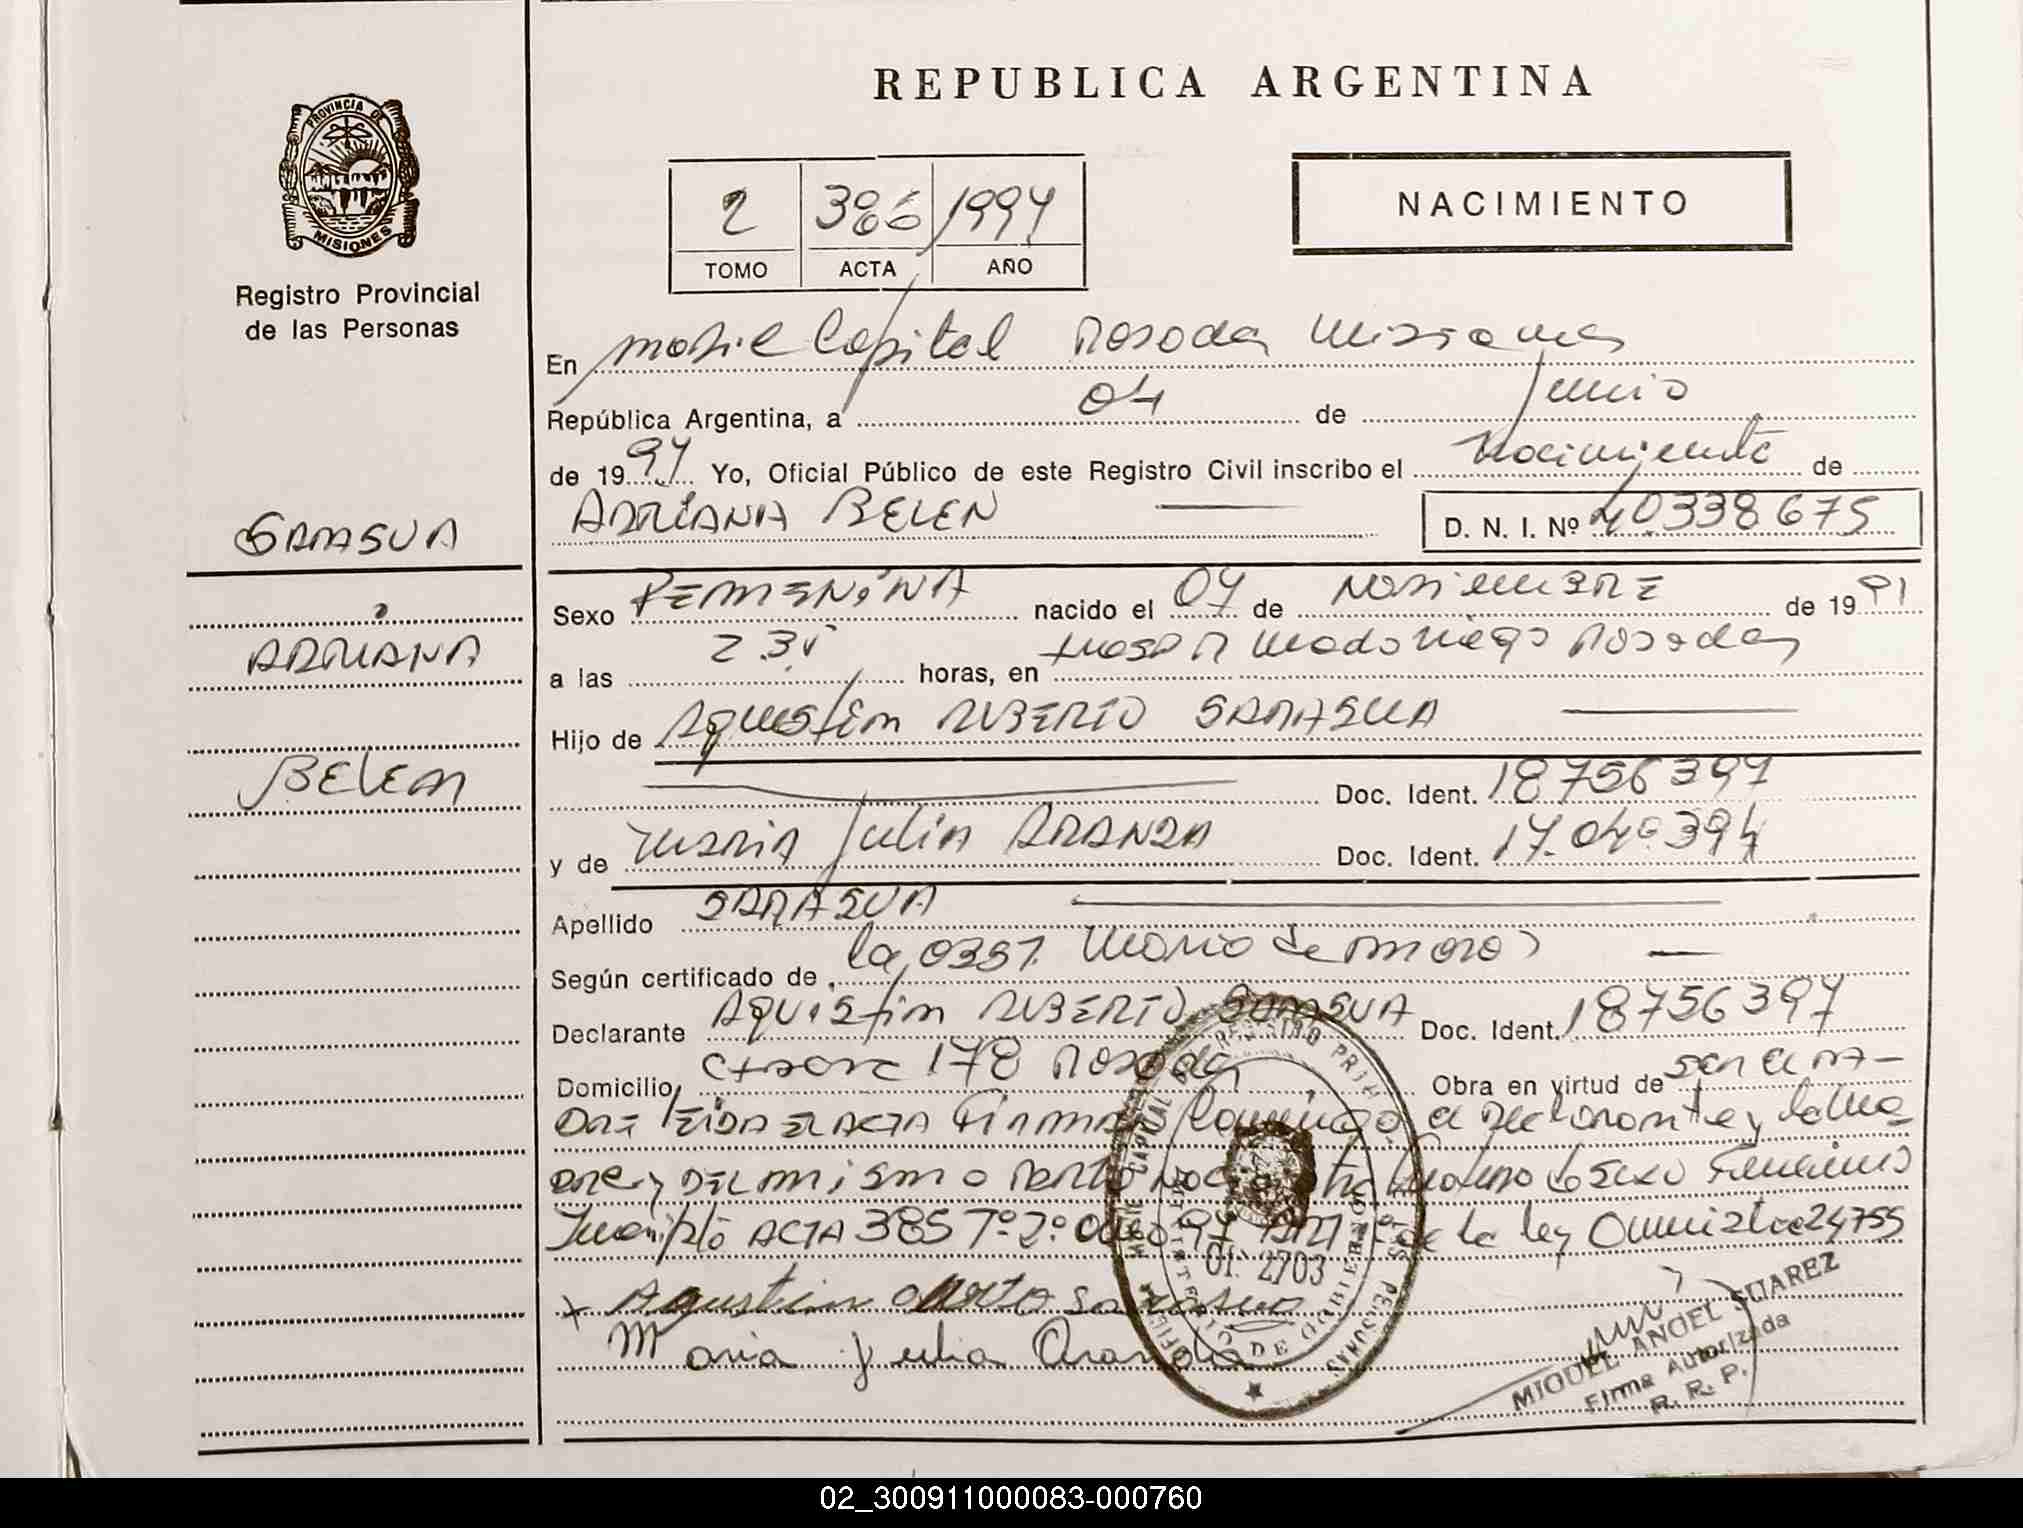 REPUBLICA ARGENTINA
PROVINCIA DE
MISIONES
Registro Provincial
de las Personas
2 386 1997
TOMO ACTA AÑO
NACIMIENTO
En Capital Posadas Misiones
República Argentina, a 04 de Junio
de 19 97 Yo, Oficial Público de este Registro Civil inscribo el Nacimiento de
ADRIANA BELEN D. N. I. Nº 40338675
SARASUA
ADRIANA
BELEN
Sexo FEMENINA nacido el 07 de NOVIEMBRE de 19 91
a las horas, en Posadas
Hijo de Agustin RUBERTO SARASUA
Doc. Ident. 18756397
y de MARIA Julia ARANDA Doc. Ident. 17.040.394
Apellido SARASUA
Según certificado de la Obst.
Declarante AGUSTIN RUBERTO SARASUA Doc. Ident. 18756397
Domicilio 178 Posadas Obra en virtud de ser el PA-
DRE LEIDA EL ACTA Firman Conmigo el Declarante y la Ma
dre y DEL MISMO PARTO NACIO Sexo Femenino
Inscripto ACTA 385 Tº 2º Año 97 de la ley 24755
Agustin Sarasua
Maria Julia Aranda
01 2703
MINISTERIO DE GOBIERNO
MIGUEL ANGEL SUAREZ
Firma Autorizada
R. R. P.
02_300911000083-000760